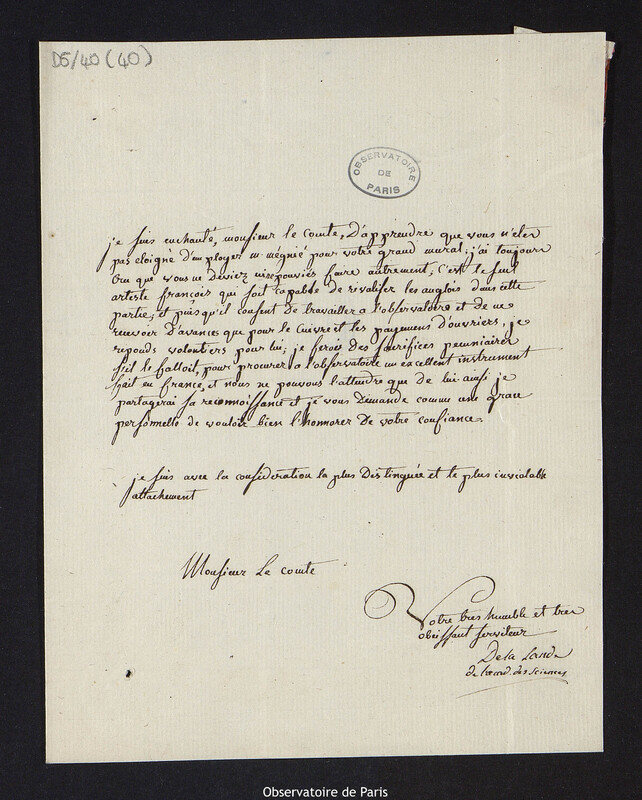 D5/40 (40)
OBSERVATOIRE
DE
PARIS
je suis enchanté, monsieur le comte, d'apprendre que vous n'etes
pas eloigné d'employer m. mégnié pour votre grand mural; j'ai toujours
cru que vous ne deviez ni ne pouviez faire autrement; c'est le seul
artiste françois qui soit capable de rivaliser les anglois dans cette
partie; et puisqu'il consent de travailler a l'observatoire et de ne
recevoir d'avances que pour le cuivre et les payemens d'ouvriers, je
reponds volontiers pour lui; je ferois des sacrifices pecuniaires
s'il le falloit, pour procurer a l'observatoire un excellent instrument
fait en france, et nous ne pouvons l'attendre que de lui ainsi je
partagerai sa reconnoissance et je vous demande comme une grace
personnelle de vouloir bien l'honorer de votre confiance.
je suis avec la consideration la plus distinguée et le plus inviolable
attachement
Monsieur Le comte
Votre tres humble et tres
obeissant serviteur
De la Lande
de l'acad. des sciences
Observatoire de Paris